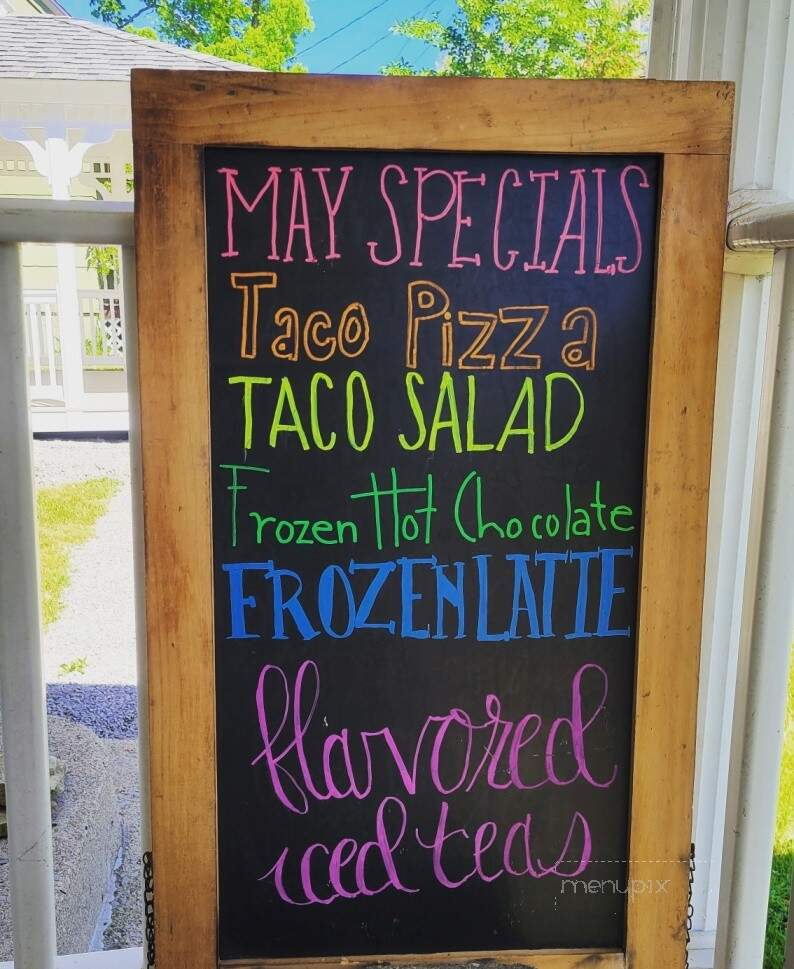 MAY SPECIALS
Taco Pizza
TACO SALAD
Frozen Hot Chocolate
FROZEN LATTE
flavored
iced teas
menupix